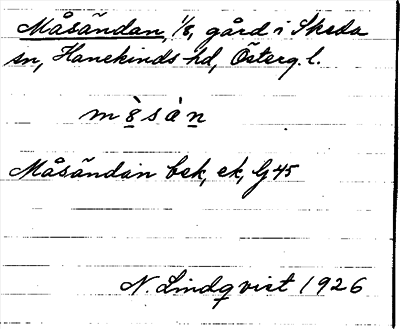 Måsändan, 1/8, gård i Skeda
sn, Hanekinds hd, Österg. l.
m è s à n
Måsändan bek, ek, G 45
N. Lindqvist 1926